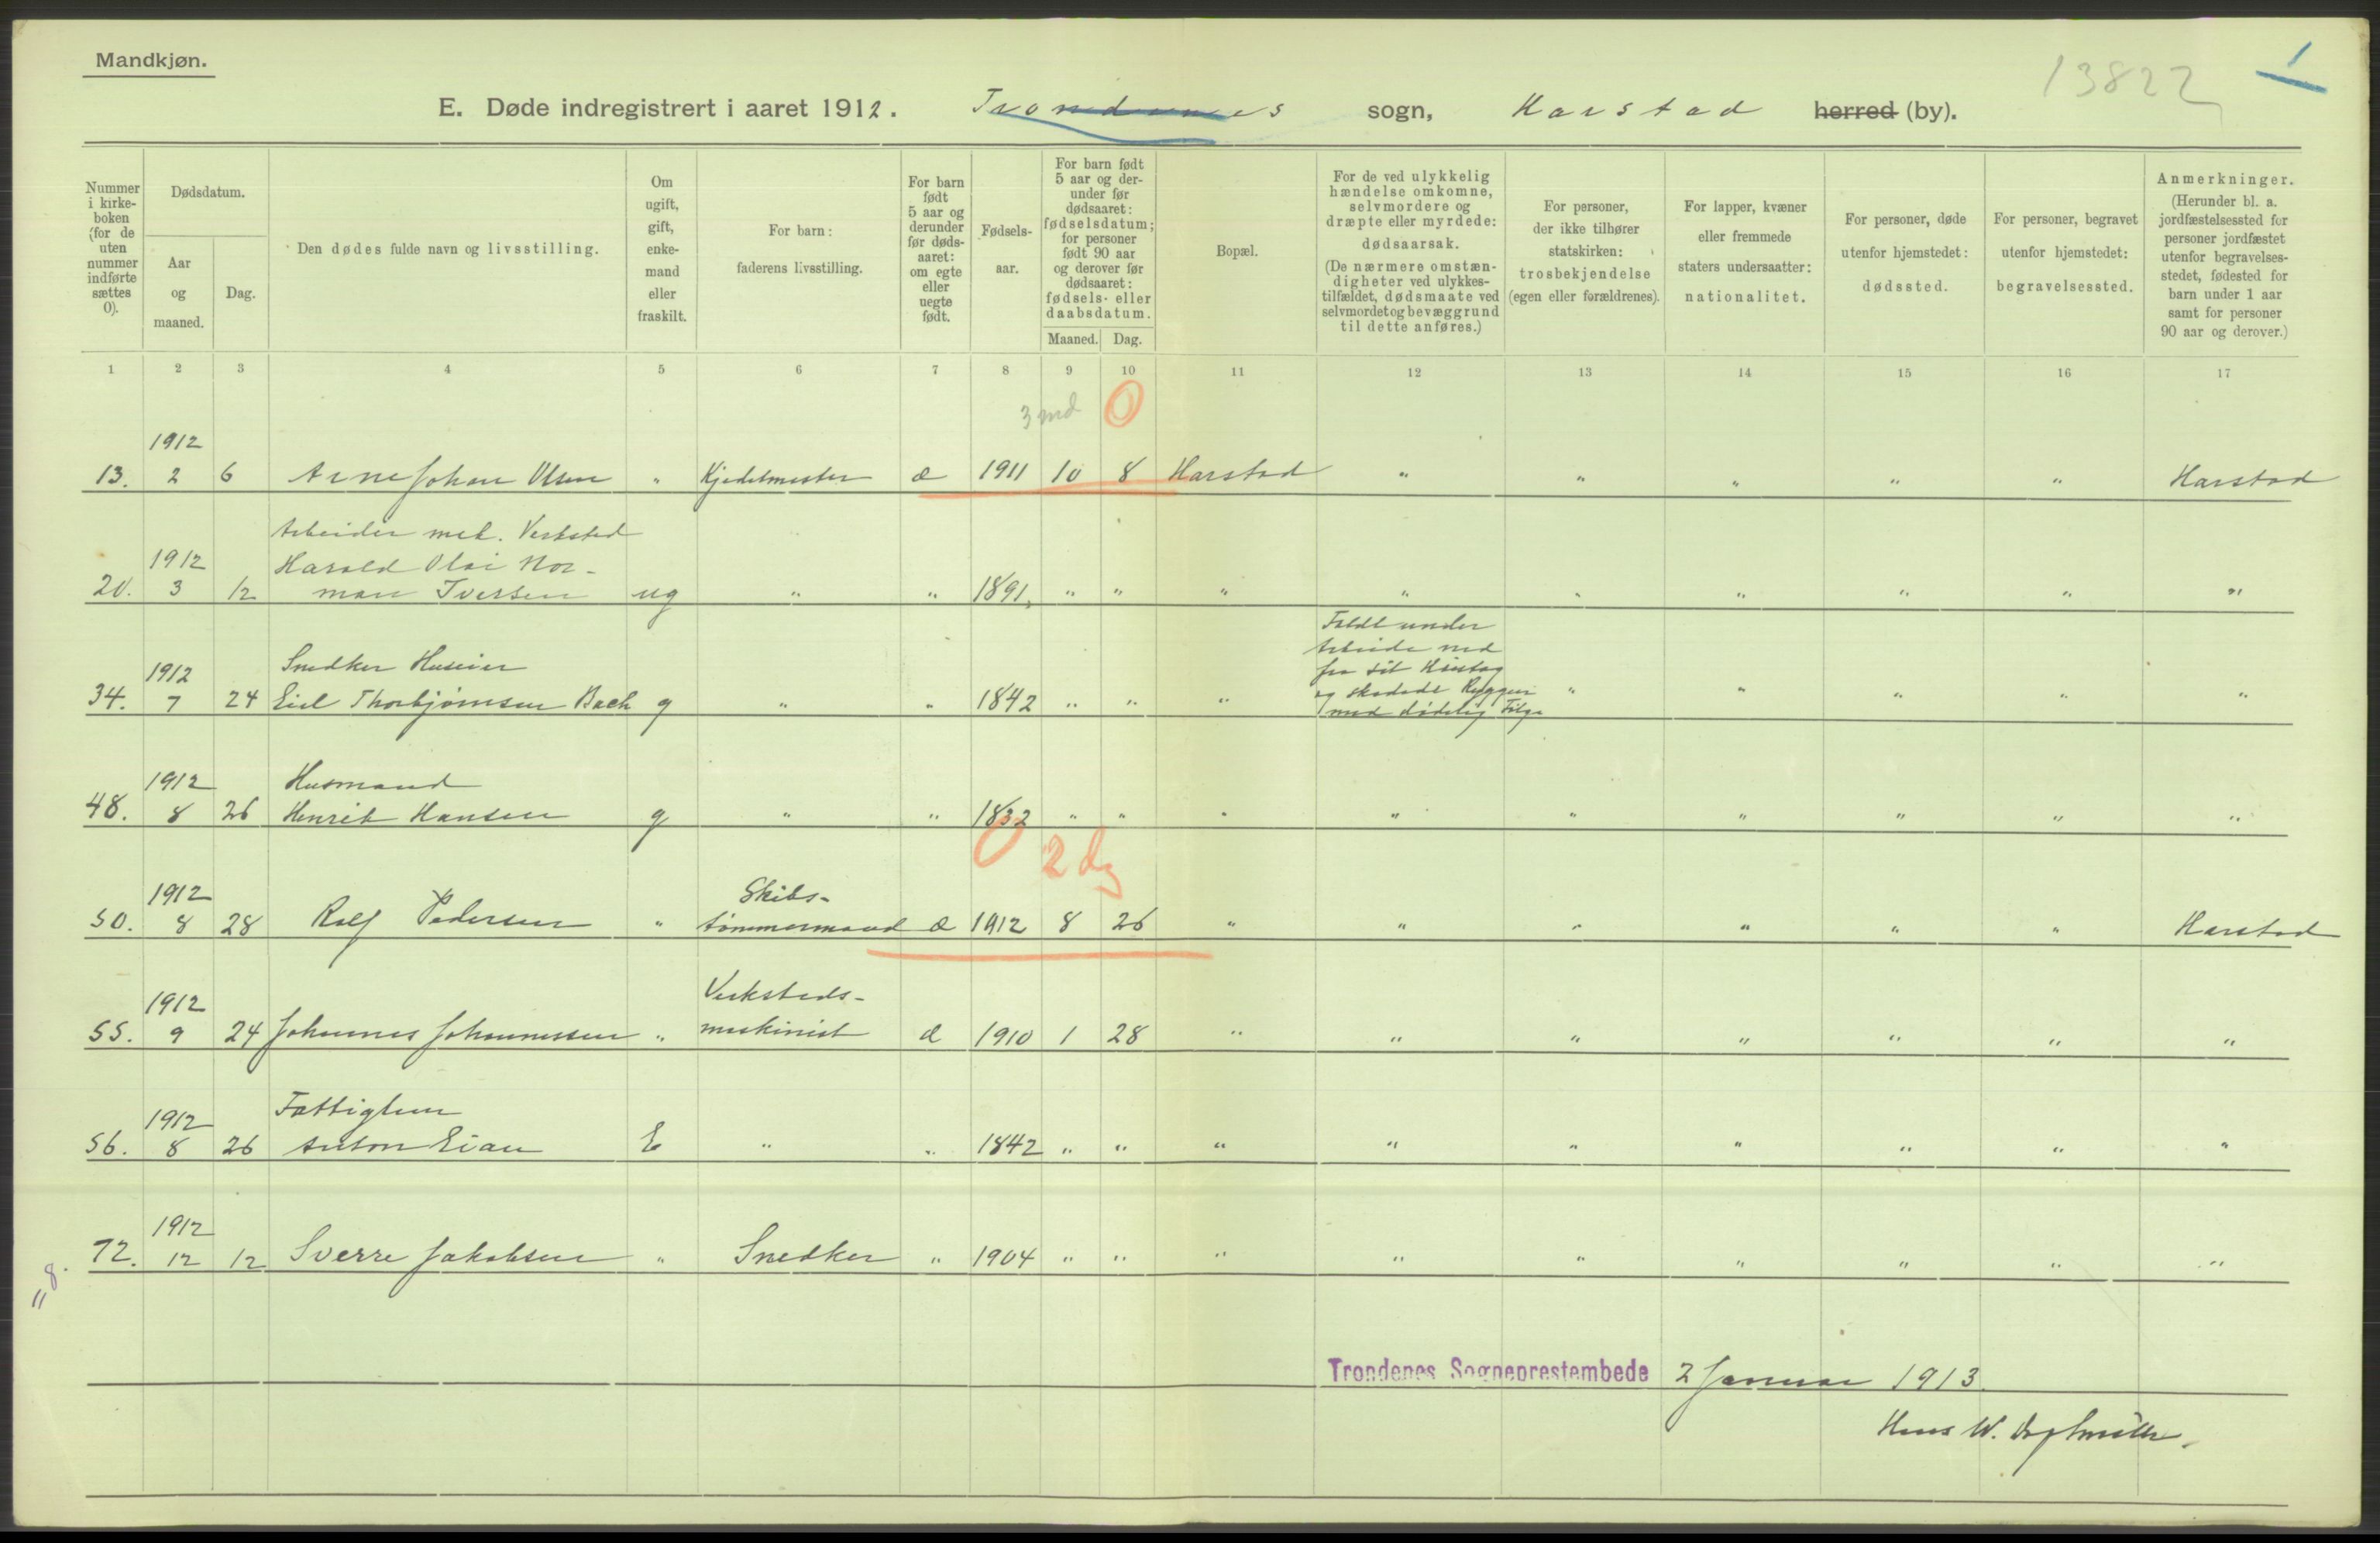 Mandkjøn.
13822
1
E. Døde indregistrert i aaret 1912. Trondenes sogn, Harstad herred (by).
Nummer i kirke-boken (for de uten nummer indførte sættes 0).
Dødsdatum.
Aar og maaned.
Dag.
Den dødes fulde navn og livsstilling.
Om ugift, gift, enke-mand eller fraskilt.
For barn: faderens livsstilling.
For barn født 5 aar og derunder før døds-aaret: om egte eller uegte født.
Fødsels-aar.
For barn født 5 aar og der-under før dødsaaret: fødselsdatum; for personer født 90 aar og derover før dødsaaret: fødsels- eller daabsdatum.
Maaned. Dag.
Bopæl.
For de ved ulykkelig hændelse omkomne, selvmordere og dræpte eller myrdede: dødsaarsak. (De nærmere omstæn-digheter ved ulykkes-tilfældet, dødsmaate ved selvmordet og bevæggrund til dette anføres.)
For personer, der ikke tilhører statskirken: trosbekjendelse (egen eller forældrenes).
For lapper, kvæner eller fremmede staters undersaatter: nationalitet.
For personer, døde utenfor hjemstedet: dødssted.
For personer, begravet utenfor hjemstedet: begravelsessted.
Anmerkninger. (Herunder bl. a. jordfæstelsessted for personer jordfæstet utenfor begravelses-stedet, fødested for barn under 1 aar samt for personer 90 aar og derover.)
1 2 3 4 5 6 7 8 9 10 11 12 13 14 15 16 17
3 md 0
1912
13. 2 6 Arne Johan Olsen " Kjedelmester æ 1911 10 8 Harstad " " " " " Harstad
Arbeider mek. Verksted
1912 Harald Olai Nor-
20. 3 12 man Iversen ug " " 1891. " " " " " " " " "
Faldt under
Arbeide ned
1912 Snedker Huseier fra sit Hustag
34. 7 24 Eiel Thorbjørnsen Bach g " " 1842 " " " og skadede Ryggen " " " " "
med dødelig Følge
1912 Husmand
48. 8 26 Henrik Hansen g " " 1832 " " " " " " " " "
0 2 dg
1912 Skibs-
50. 8 28 Rolf Pedersen " tømmermand æ 1912 8 26 " " " " " " Harstad
1912 Verksteds-
55. 9 24 Johannes Johannessen " maskinist æ 1910 1 28 " " " " " " "
1912 Fattiglem
56. 8 26 Anton Eian E " " 1842 " " " " " " " " "
1912
72. 12 12 Sverre Jakobsen " Snedker " 1904 " " " " " " " " "
= 8.
Trondenes Sogneprestembede 2 Januar 1913.
Hans W.